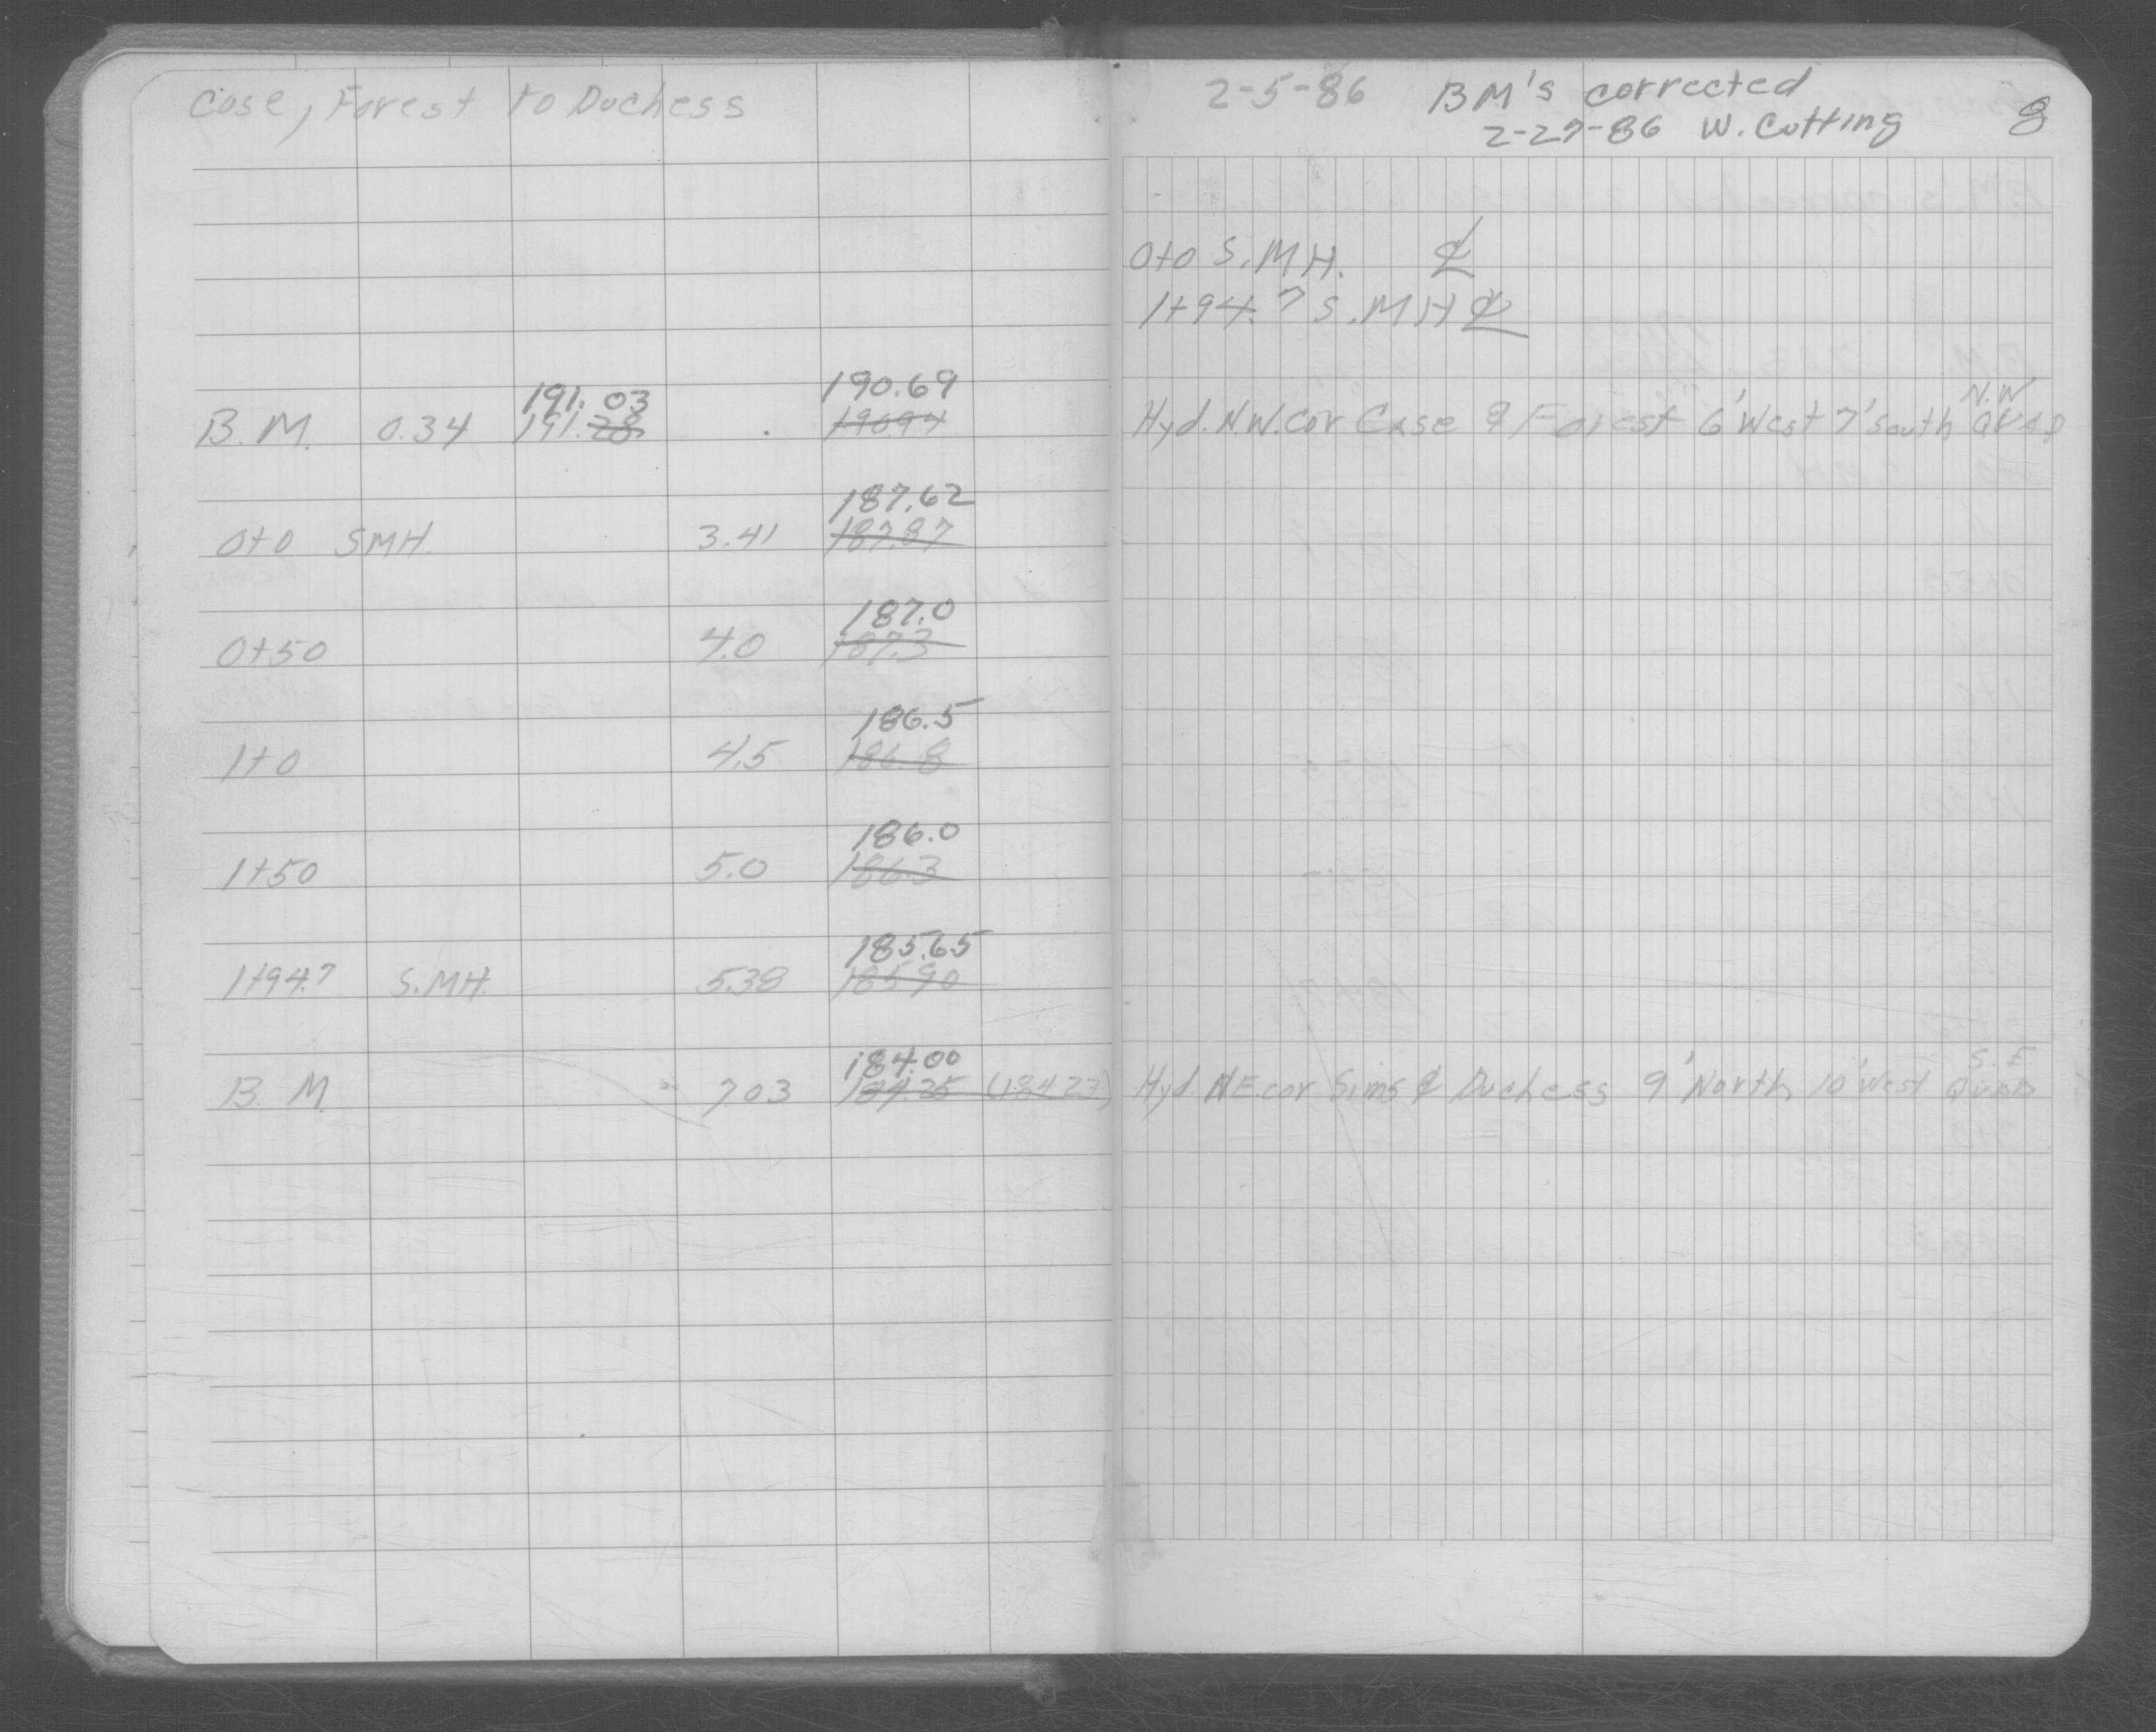 Case, Forest to Duchess
2-5-86 BM's corrected
2-27-86 W. Cutting 8
0+0 S.MH. ℄
1+94.7 S.MH ℄
191.03 190.69
B.M. 0.34 191.28 190.94 Hyd. N.W. cor Case & Forest 6' West 7' South N.W QUAD
187.62
0+0 SMH. 3.41 187.87
187.0
0+50 4.0 187.3
186.5
1+0 4.5 186.8
186.0
1+50 5.0 186.3
185.65
1+94.7 S.MH. 5.38 185.90
184.00
B.M. 7.03 184.25 (184.23) Hyd. NE. cor Sims & Duchess 9' North 10' West S.E QUAD